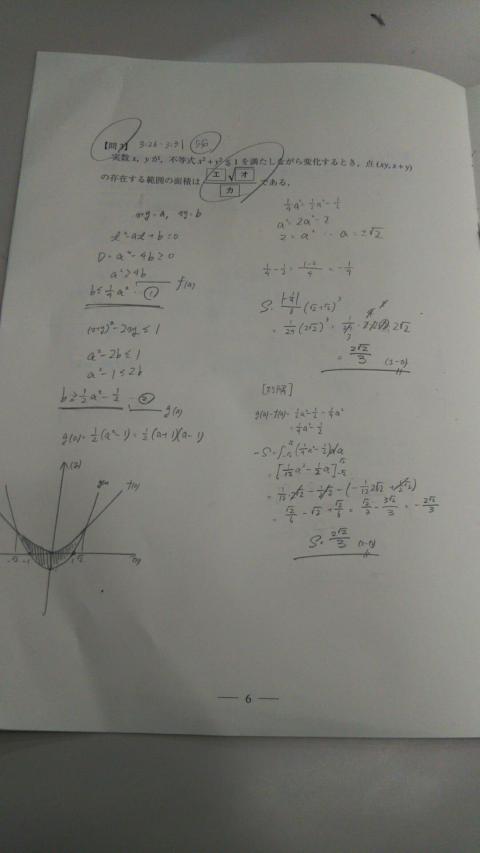 【問3】 3:26-3:31 5分
実数x, yが, 不等式x²+y²≦1を満たしながら変化するとき, 点(xy, x+y)
の存在する範囲の面積は エ√オ / カ である.
x+y=a, xy=b
t²-at+b=0
D=a²-4b≧0
a²≧4b
b≦1/4a² … ① f(a)
(x+y)²-2xy≦1
a²-2b≦1
a²-1≦2b
b≧1/2a²-1/2 … ② g(a)
g(a)=1/2(a²-1)=1/2(a+1)(a-1)
g(a) f(a)
-√2 -1 1 √2
1/4a²=1/2a²-1/2
a²=2a²-2
2=a² ∴a=±√2
1/4-1/2=(1-2)/4=-1/4
S=|-1/4|/6(√2+√2)³
=1/24(2√2)³
=2√2/3
[別解]
g(a)-f(a)=1/2a²-1/2-1/4a²
=1/4a²-1/2
-S=∫(1/4a²-1/2)da
=[1/12a³-1/2a]
=√2/6-√2+√2/6=√2/3-3√2/3=-2√2/3
S=2√2/3
— 6 —